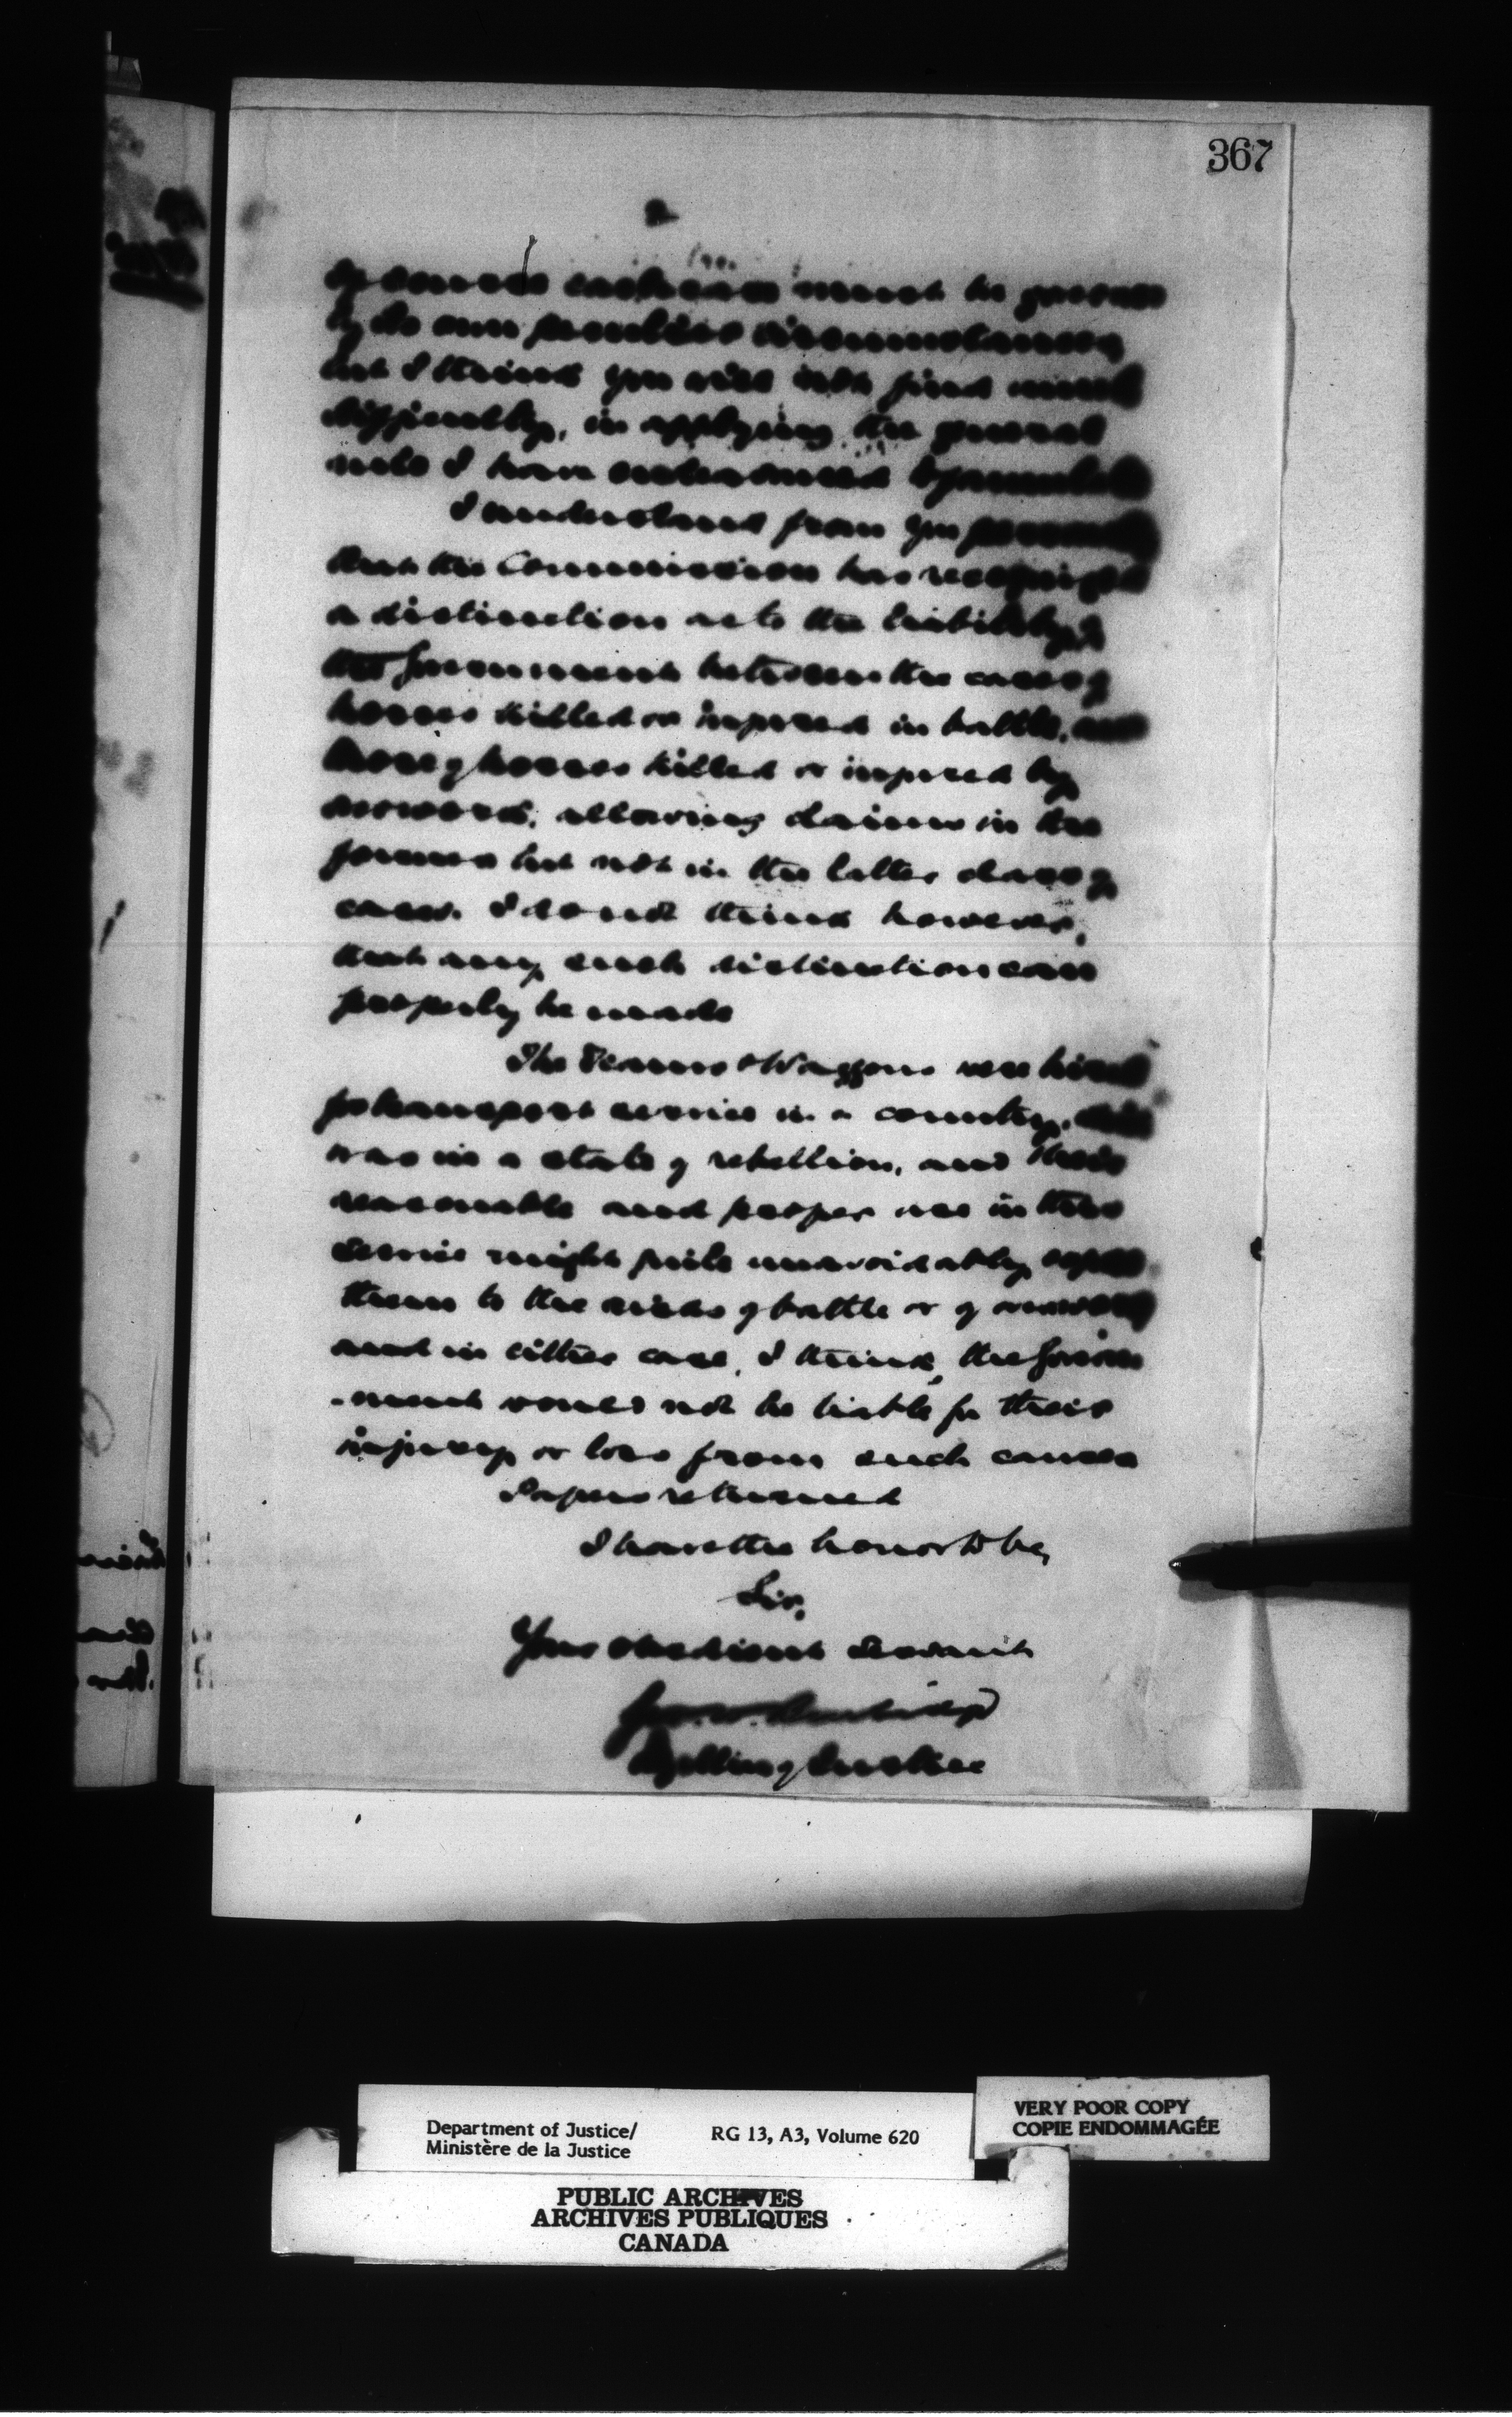 367
2
Of course each case must be governed
by its own peculiar circumstances,
but I think you will not find much
difficulty, in applying the general
rule I have endeavoured to formulate
I understand from you personally
that the Commission has recognized
a distinction as to the liability of
the Government between the cases of
horses killed or injured in battle, and
those of horses killed or injured by
, allowing claims in the
former but not in the latter class of
cases. I do not think however,
that any such distinction can
properly be made
The Teams & Waggons were hired
for transport service in a country, which
was in a state of rebellion, and their
reasonable and proper use in this
service might quite unavoidably expose
them to the risks of battle or of
and in either case, I think, the Govern
-ment would not be liable for their
injury or loss from such causes
Papers returned
I have the honor to be,
Sir,
Your obedient Servant
Geo. W. Burbidge
D of Justice
Department of Justice/
Ministère de la Justice
RG 13, A3, Volume 620
VERY POOR COPY
COPIE ENDOMMAGÉE
PUBLIC ARCHIVES
ARCHIVES PUBLIQUES
CANADA